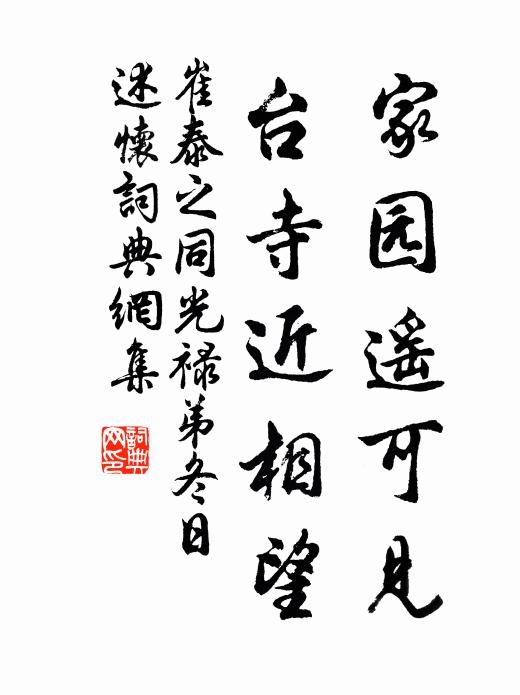 家园遥可见
台寺近相望
崔泰之同光禄弟冬日
述懷詞典網集
詞典
网印